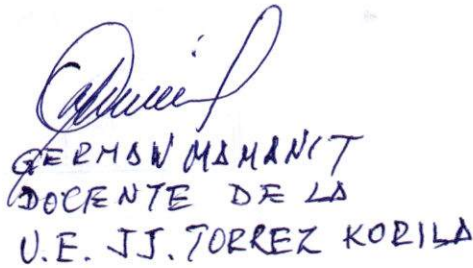 GERMAN MAMANI T
DOCENTE DE LA
U.E. JJ. TORREZ KORILA